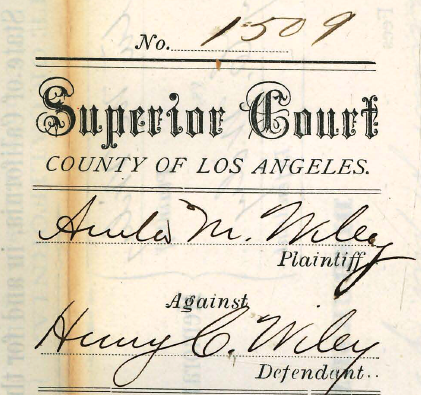 No. 1509
Superior Court
COUNTY OF LOS ANGELES.
M. Wiley
Plaintiff
Against
Henry C. Wiley
Defendant..